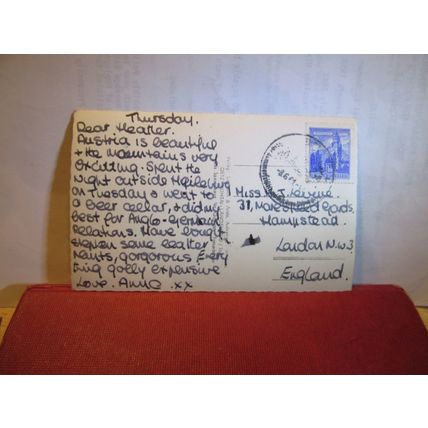 Thursday.
Dear Heather.
Austria is beautiful
+ the mountains very
exciting. Spent the
night outside
on Tuesday + went to
a beer cellar, + did my
best for Anglo-German
Relations. Have bought
Stephen some leather
Pants, gorgorous Every
thing golly expensive
Love. Anne xx
Miss H. J.
31,
Hampstead.
London N.W.3
England.